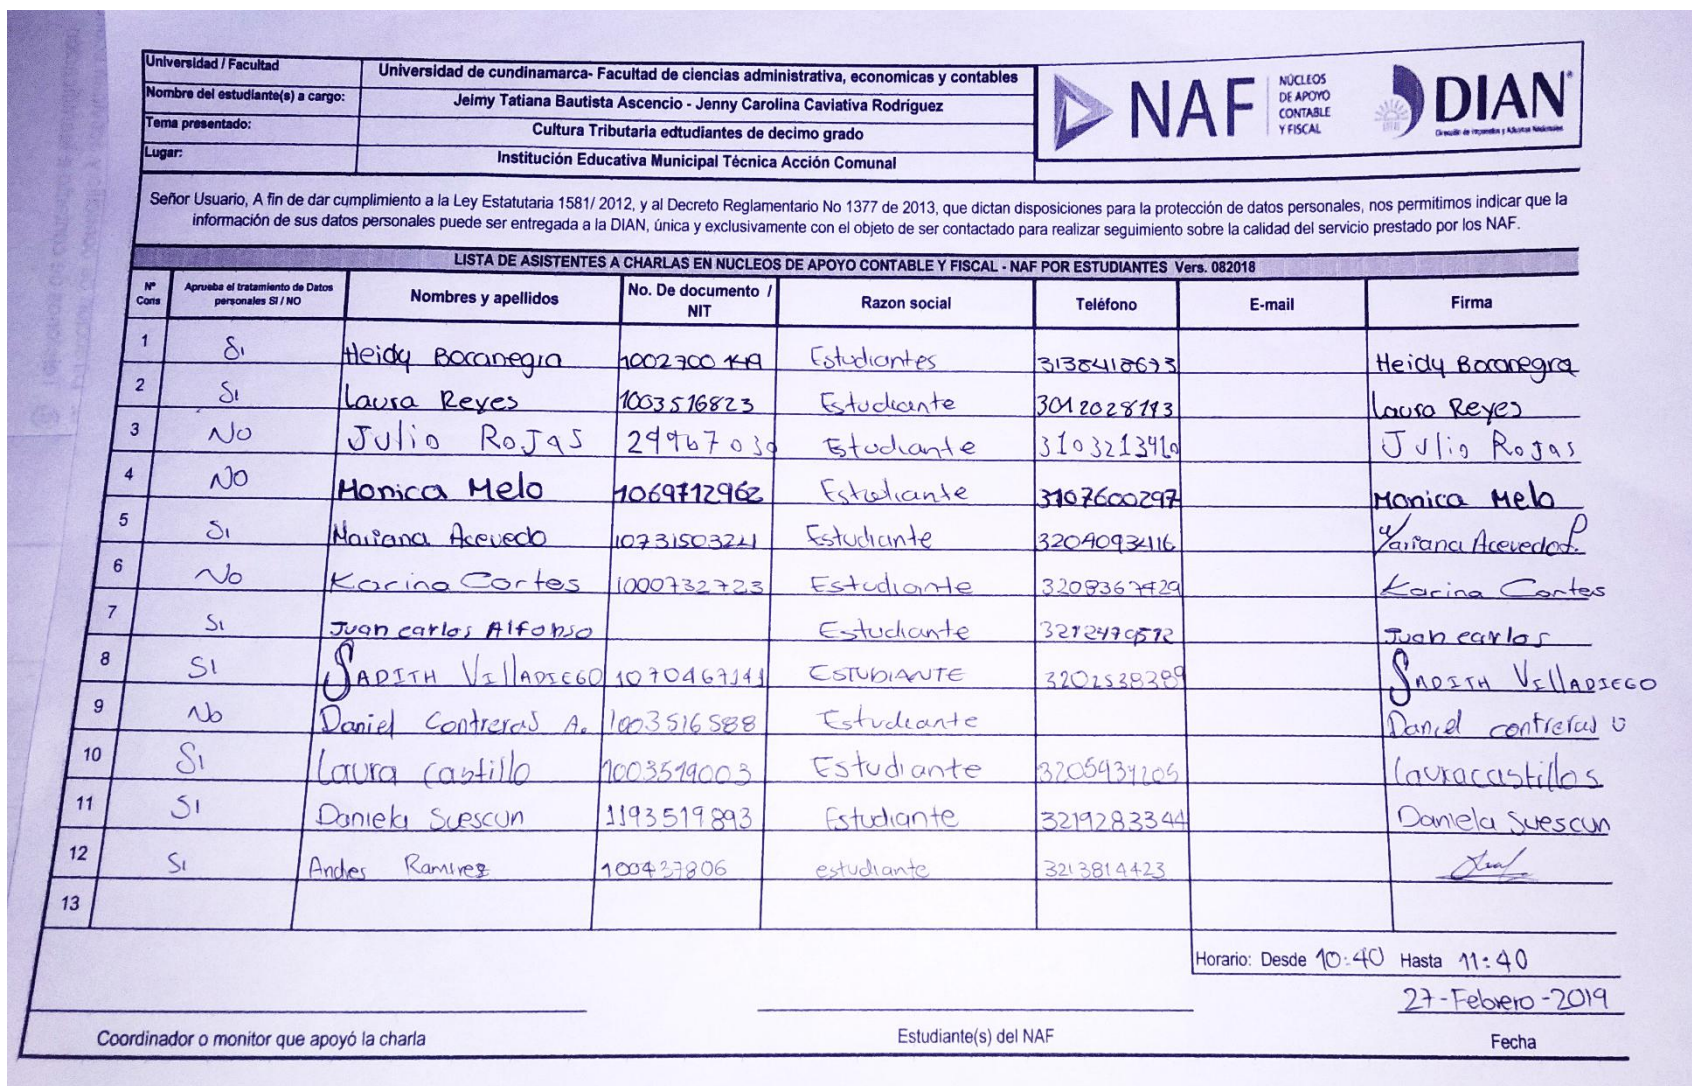 Universidad / Facultad Universidad de cundinamarca- Facultad de ciencias administrativa, economicas y contables
Nombre del estudiante(s) a cargo: Jeimy Tatiana Bautista Ascencio - Jenny Carolina Caviativa Rodríguez
Tema presentado: Cultura Tributaria edtudiantes de decimo grado
Lugar: Institución Educativa Municipal Técnica Acción Comunal
NAF NÚCLEOS DE APOYO CONTABLE Y FISCAL
DIAN
Dirección de Impuestos y Aduanas Nacionales
Señor Usuario, A fin de dar cumplimiento a la Ley Estatutaria 1581/ 2012, y al Decreto Reglamentario No 1377 de 2013, que dictan disposiciones para la protección de datos personales, nos permitimos indicar que la
información de sus datos personales puede ser entregada a la DIAN, única y exclusivamente con el objeto de ser contactado para realizar seguimiento sobre la calidad del servicio prestado por los NAF.
LISTA DE ASISTENTES A CHARLAS EN NUCLEOS DE APOYO CONTABLE Y FISCAL - NAF POR ESTUDIANTES Vers. 082018
Nº Cons Aprueba el tratamiento de Datos personales SI / NO Nombres y apellidos No. De documento / NIT Razon social Teléfono E-mail Firma
1 Si Heidy Bocanegra 1002700149 Estudiantes 3138418673 Heidy Bocanegra
2 Si Laura Reyes 1003516823 Estudiante 3012028193 Laura Reyes
3 No Julio Rojas 29967030 Estudiante 3103213410 Julio Rojas
4 NO Monica Melo 1069712962 Estudiante 3107600297 Monica Melo
5 Si Mariana Acevedo 1073150321 Estudiante 3204093416 Mariana Acevedo
6 No Karina Cortes 1000732723 Estudiante 3208367429 Karina Cortes
7 Si Juan carlos Alfonso Estudiante 3212470512 Juan carlos
8 SI SADITH VillADIEGO 1070467141 ESTUDIANTE 3202538389 SADITH VillADIEGO
9 No Daniel Contreras A. 1003516588 Estudiante Daniel contreras
10 Si Laura Castillo 1003519003 Estudiante 3205931205 Lauracastillos
11 SI Daniela Suescun 1193519893 Estudiante 3219283344 Daniela Suescun
12 Si Andres Ramirez 100437806 estudiante 3213814423
13
Horario: Desde 10:40 Hasta 11:40
27-Febrero-2019
Coordinador o monitor que apoyó la charla Estudiante(s) del NAF Fecha